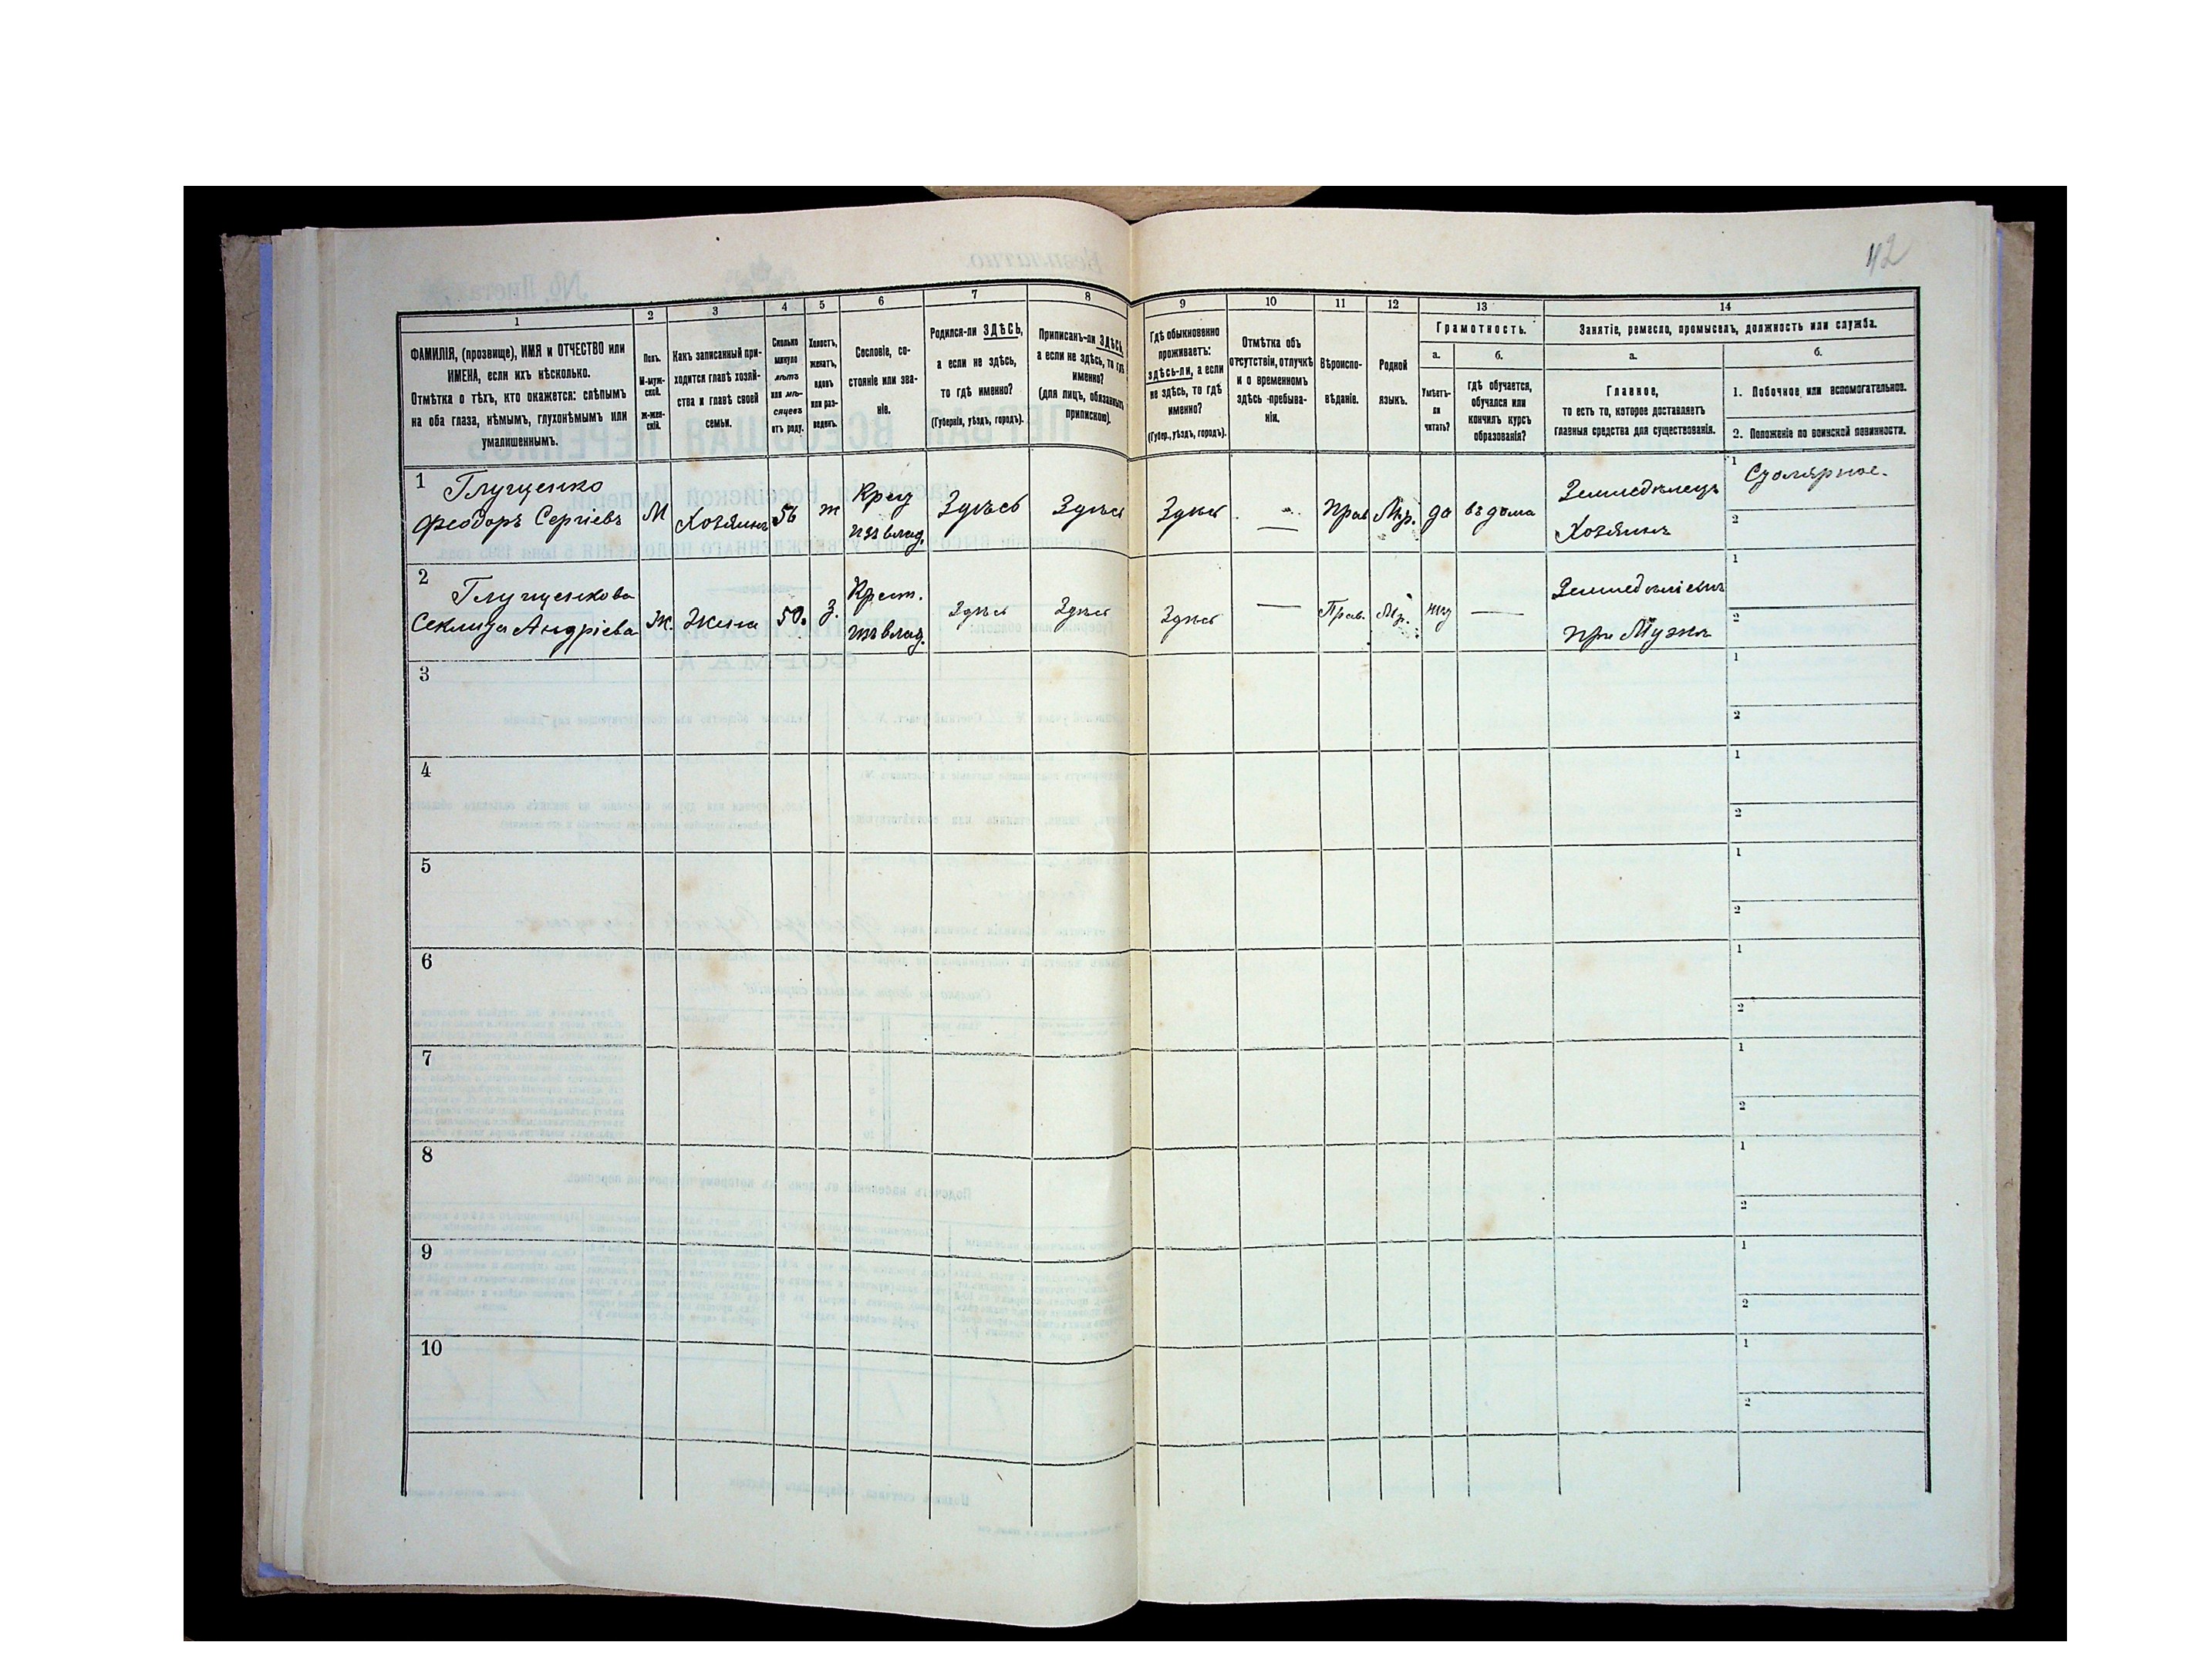 42
1 2 3 4 5 6 7 8 9 10 11 12 13 14
ФАМИЛІЯ, (прозвище), ИМЯ и ОТЧЕСТВО или
ИМЕНА, если ихъ нѣсколько.
Отмѣтка о тѣхъ, кто окажется: слѣпымъ
на оба глаза, нѣмымъ, глухонѣмымъ или
умалишеннымъ.
Полъ.
М-муж-
ской.
Ж-жен-
скій.
Какъ записанный при-
ходится главѣ хозяй-
ства и главѣ своей
семьи.
Сколько
минуло
лѣтъ
или мѣ-
сяцевъ
отъ роду.
Холостъ,
женатъ,
вдовъ
или раз-
веденъ.
Сословіе, со-
стояніе или зва-
ніе.
Родился-ли ЗДѢСЬ,
а если не здѣсь,
то гдѣ именно?
(Губернія, уѣздъ, городъ).
Приписанъ-ли ЗДѢСЬ,
а если не здѣсь, то гдѣ
именно?
(для лицъ, обязанныхъ
припискою).
Гдѣ обыкновенно
проживаетъ:
здѣсь-ли, а если
не здѣсь, то гдѣ
именно?
(Губер., уѣздъ, городъ).
Отмѣтка объ
отсутствіи, отлучкѣ
и о временномъ
здѣсь -пребыва-
ніи.
Вѣроиспо-
вѣданіе.
Родной
языкъ.
Грамотность.
а.
Умѣетъ-
ли
читать?
б.
гдѣ обучается,
обучался или
кончилъ курсъ
образованія?
Занятіе, ремесло, промыселъ, должность или служба.
а.
Главное,
то есть то, которое доставляетъ
главныя средства для существованія.
б.
1. Побочное или вспомогательное.
2. Положеніе по воинской повинности.
1 Глущенко
Феодоръ Сергіевъ М Хозяинъ 56 ж Крест изъ влад. Здѣсь Здѣсь Здѣсь — Прав Мр. да въ дома
Земледѣлецъ
Хозяинъ
1 Столярное.
2
2 Глущенкова
Секлита Андріева Ж. Жена 50. З. Крест. изъ влад. Здѣсь Здѣсь Здѣсь — Прав. Мр. нѣт —
при Мужѣ
1
2
3
1
2
4
1
2
5
1
2
6
1
2
7
1
2
8
1
2
9
1
2
10
1
2